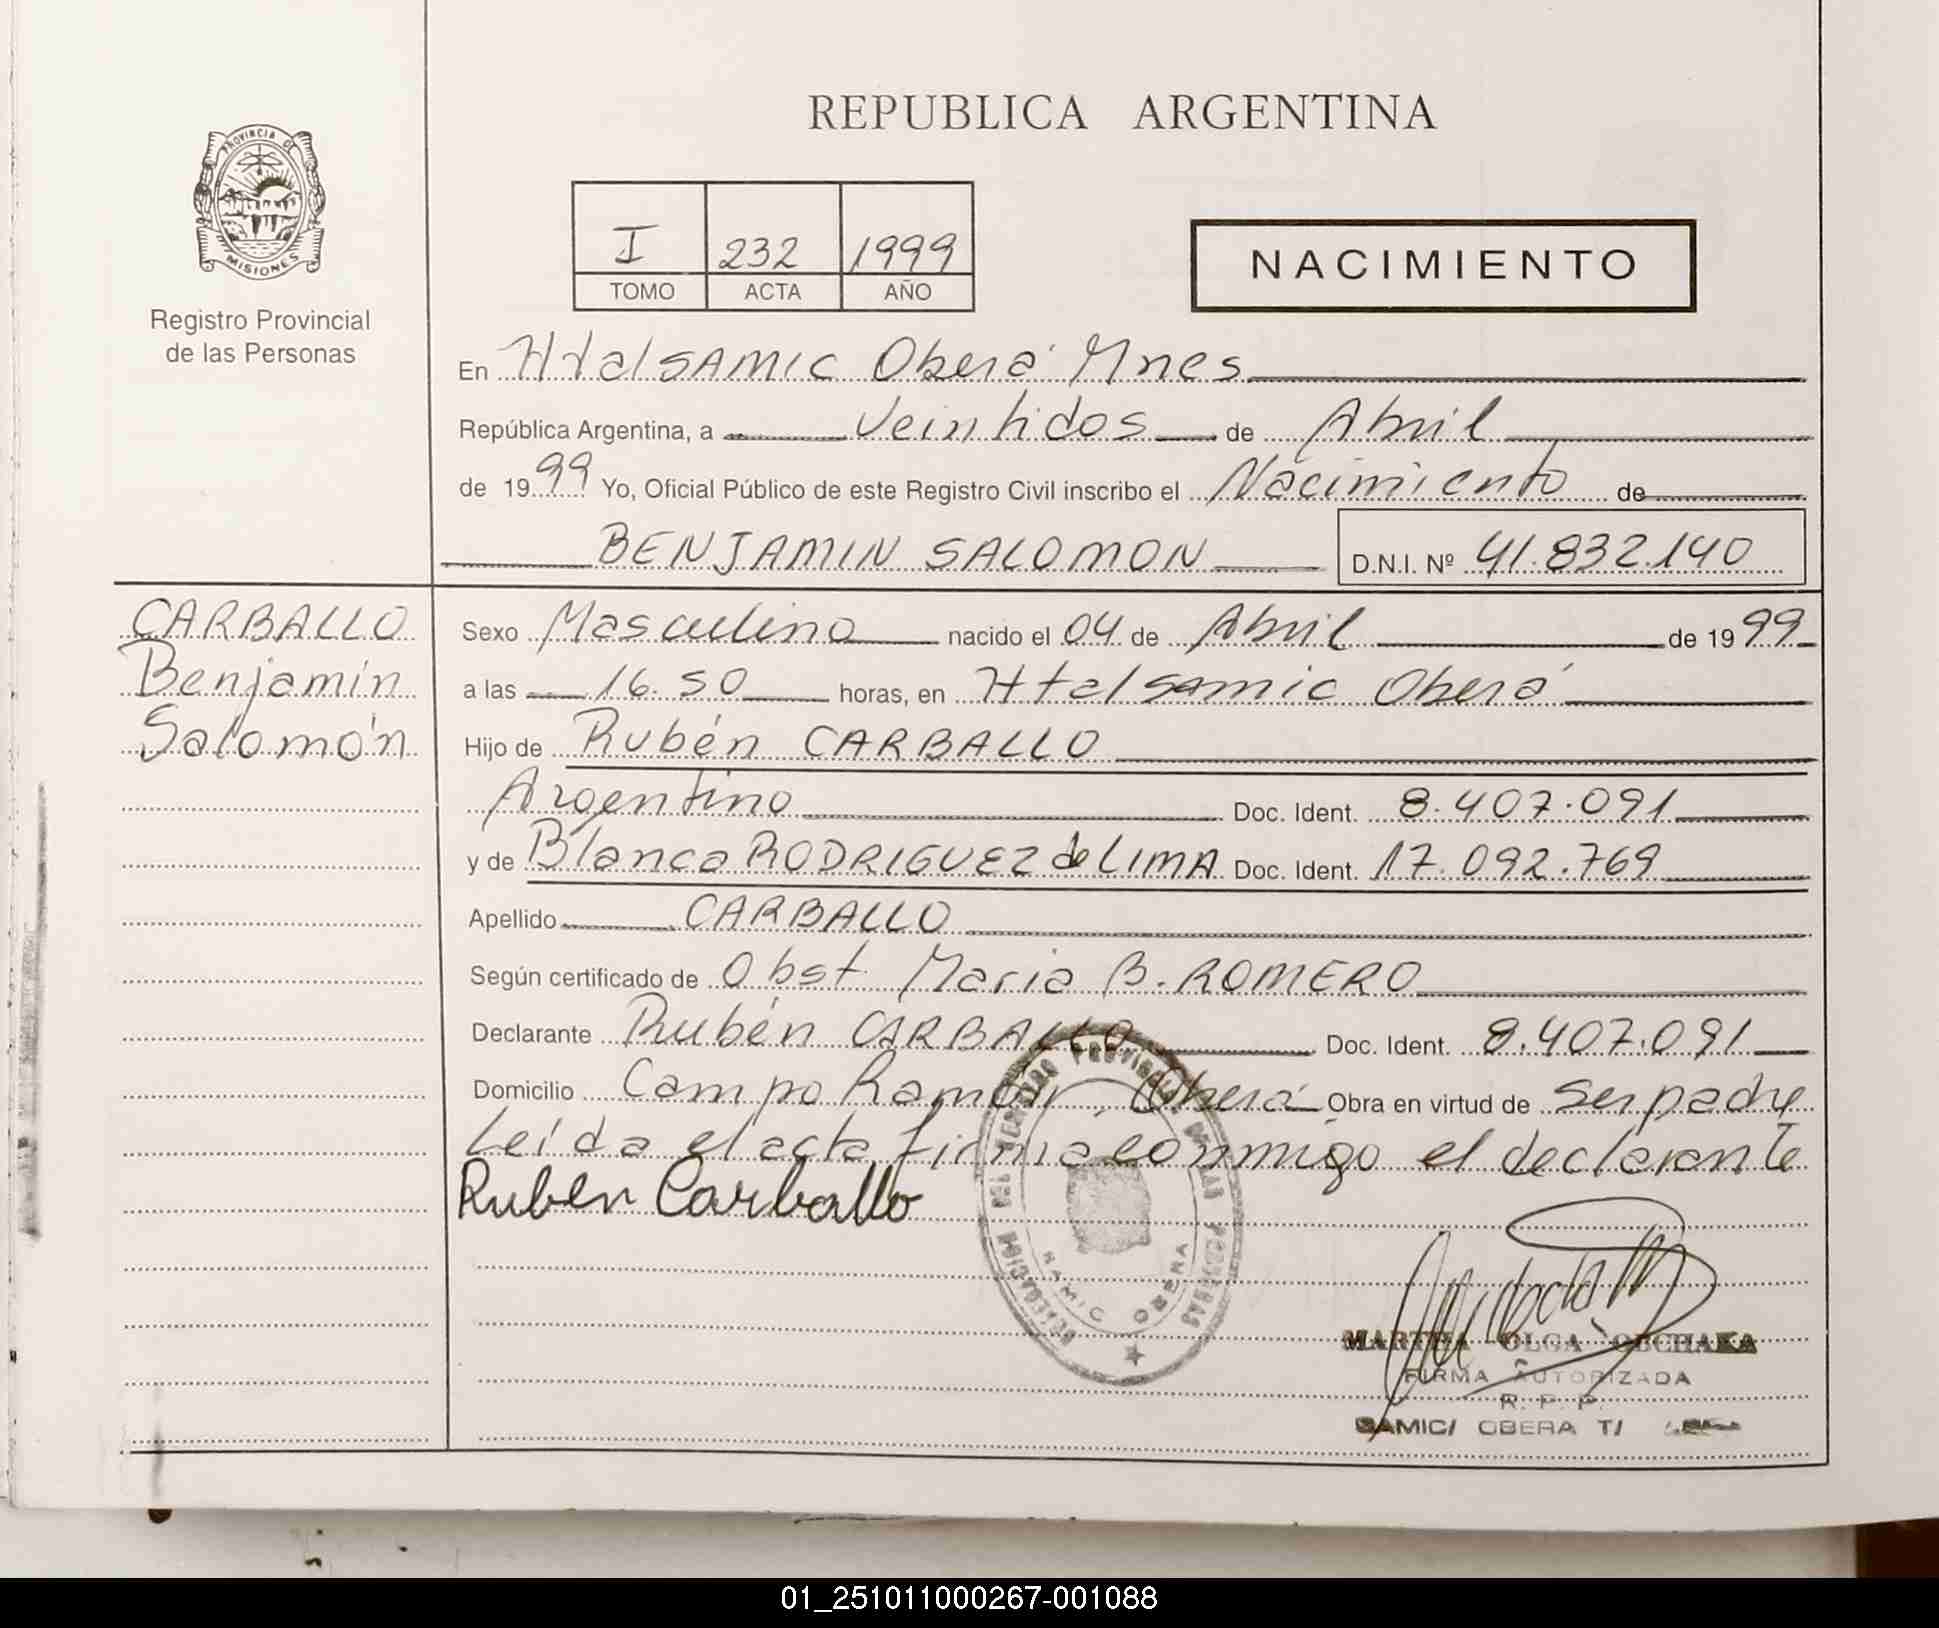 REPUBLICA ARGENTINA
PROVINCIA DE
MISIONES
Registro Provincial
de las Personas
I 232 1999
TOMO ACTA AÑO
NACIMIENTO
En Htal SAMIC Oberá Mnes
República Argentina, a Veintidos de Abril
de 1999 Yo, Oficial Público de este Registro Civil inscribo el Nacimiento de
BENJAMIN SALOMON D.N.I. Nº 41.832.140
CARBALLO
Benjamín
Salomón
Sexo Masculino nacido el 04 de Abril de 1999
a las 16.50 horas, en Htal samic Oberá
Hijo de Rubén CARBALLO
Argentino Doc. Ident. 8.407.091
y de Blanca RODRIGUEZ de LIMA Doc. Ident. 17.092.769
Apellido CARBALLO
Según certificado de Obst. Maria B. ROMERO
Declarante Rubén CARBALLO Doc. Ident. 8.407.091
Domicilio Campo Ramón, Oberá Obra en virtud de ser padre
Leída el acta firma conmigo el declarante
Ruben Carballo
DELEGACION DEL REGISTRO PROVINCIAL DE LAS PERSONAS
SAMIC OBERA
MARTHA OLGA
FIRMA AUTORIZADA
R. P. P.
SAMIC/ OBERA T/
01_251011000267-001088